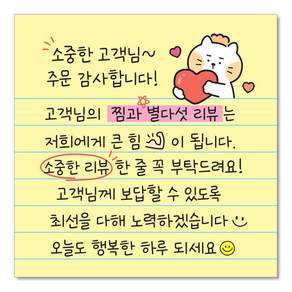 소중한 고객님~
주문 감사합니다!
고객님의 찜과 별다섯 리뷰는
저희에게 큰 힘이 됩니다.
소중한 리뷰 한 줄 꼭 부탁드려요!
고객님께 보답할 수 있도록
최선을 다해 노력하겠습니다
오늘도 행복한 하루 되세요